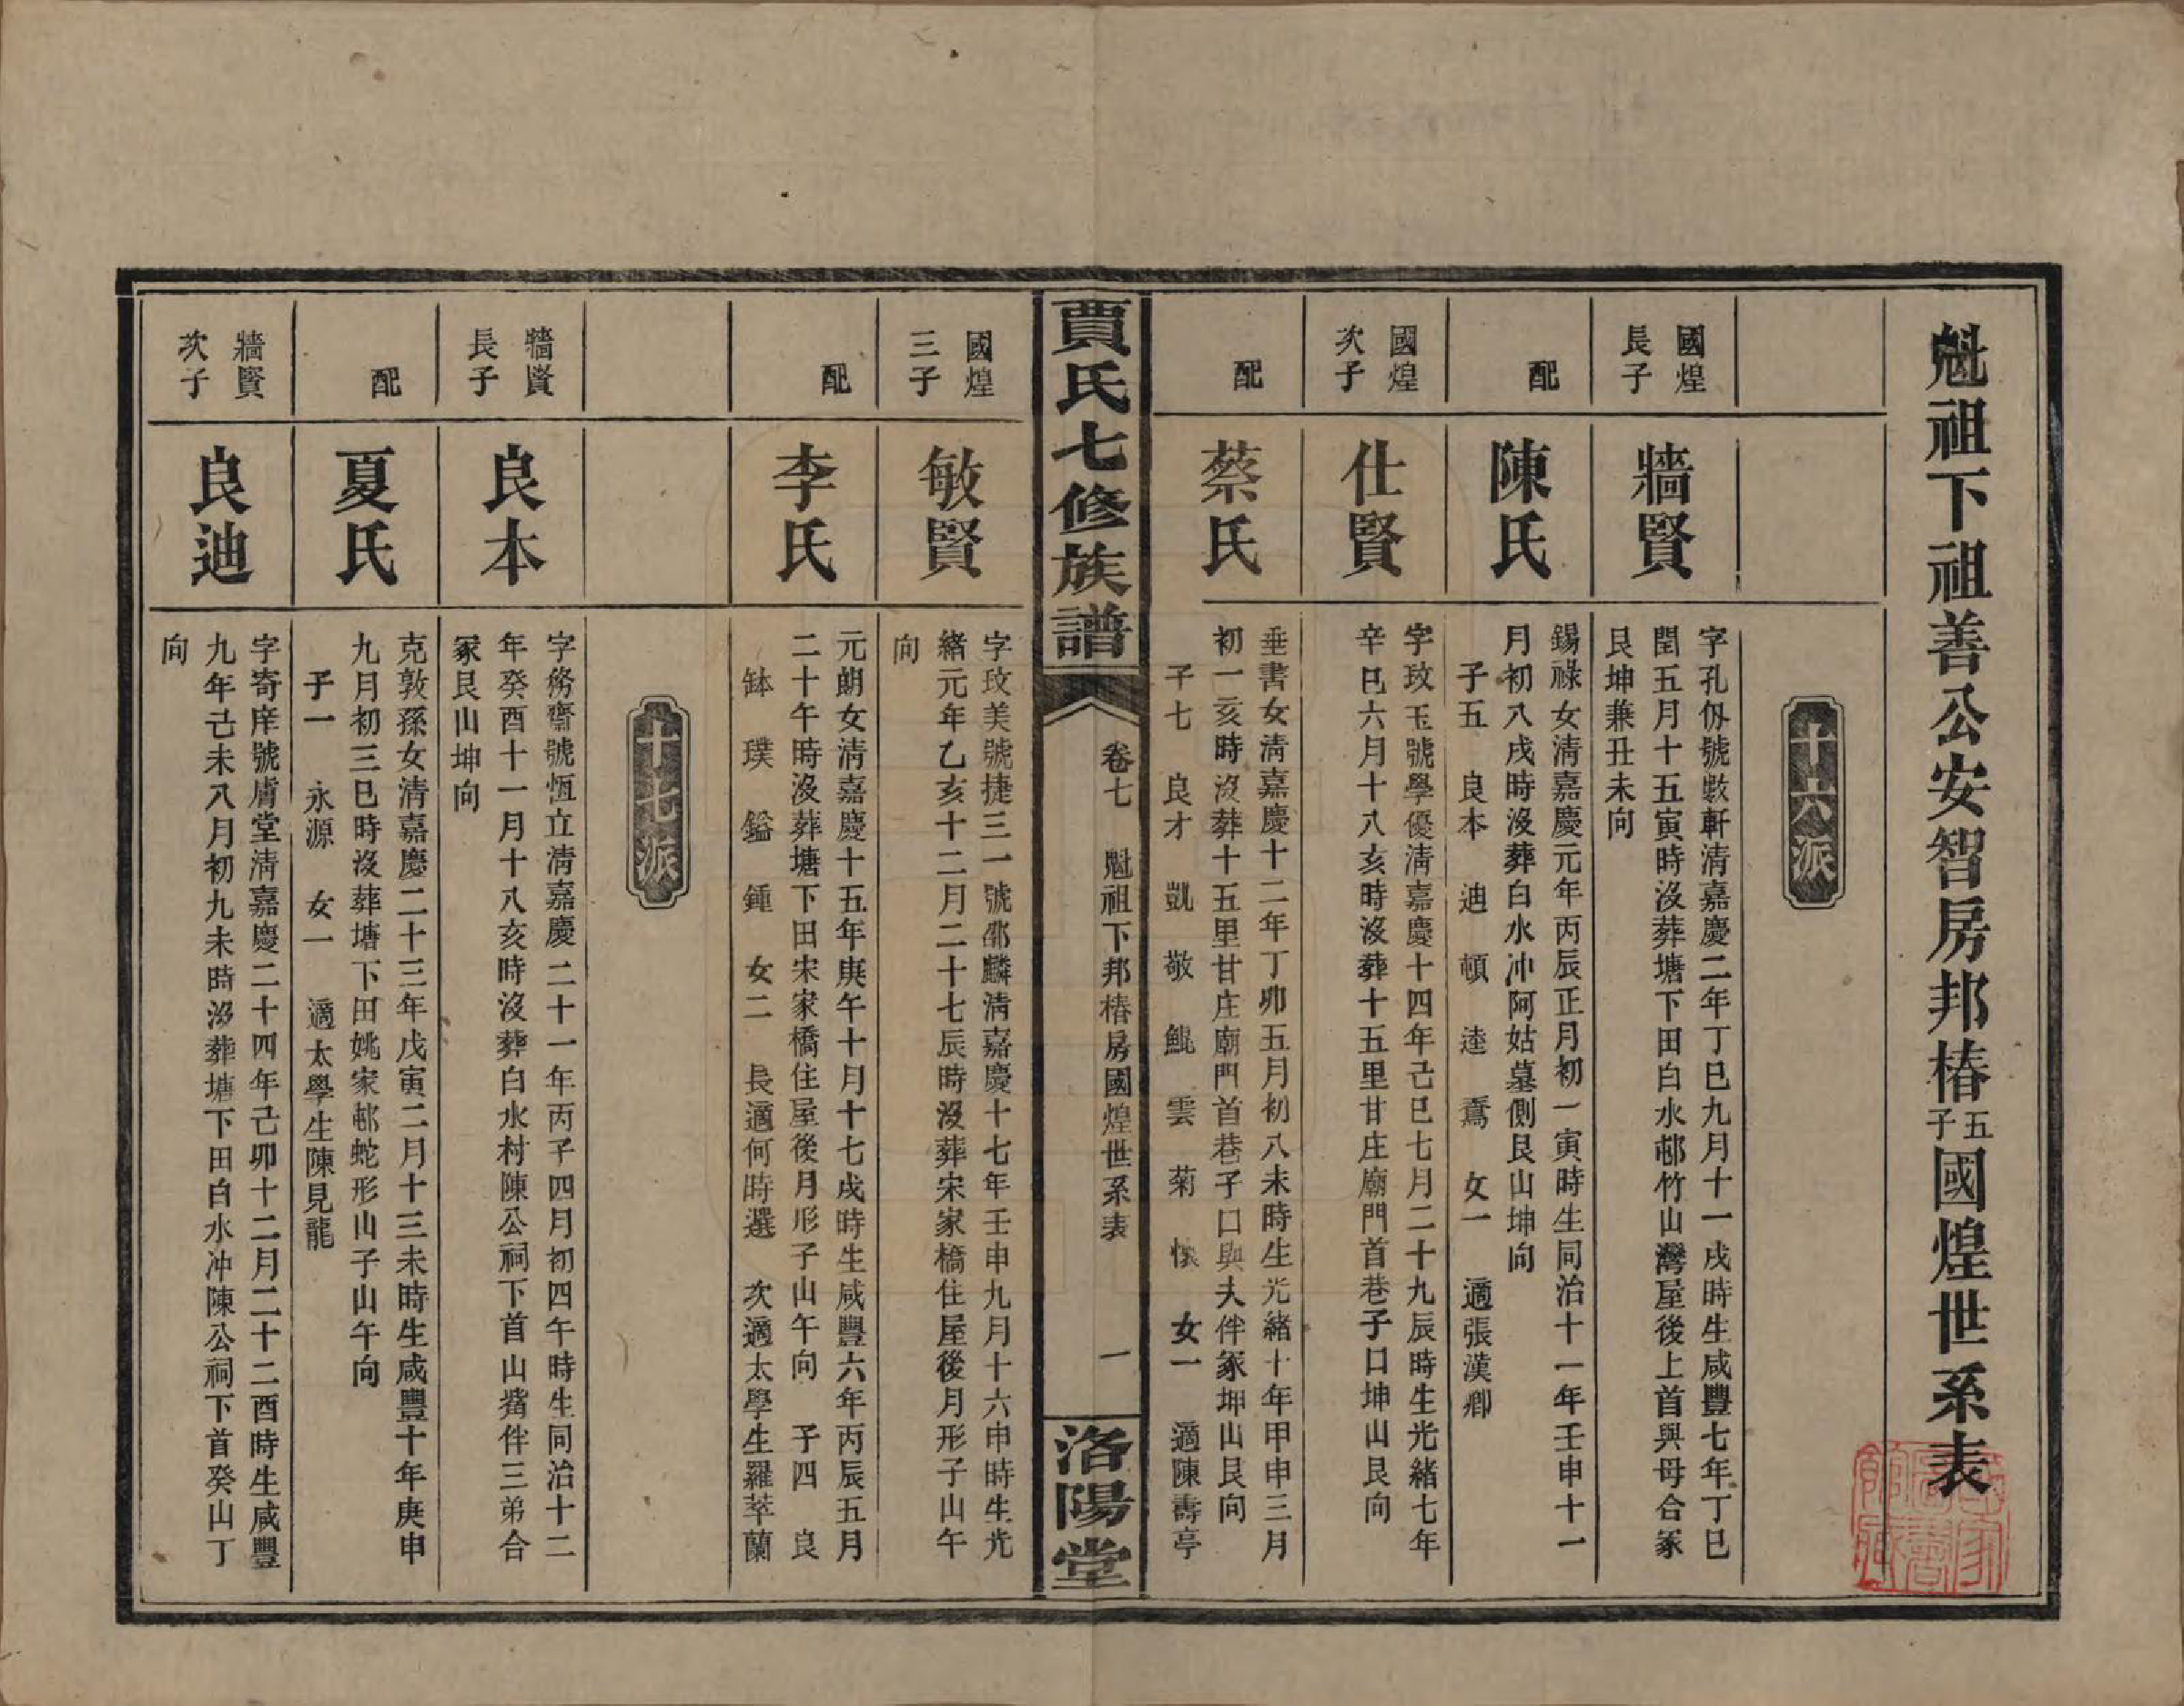 魁祖下祖善公安智房邦椿五子國煌世系表
十六派
國煌長子
牆賢
字孔仞號數軒清嘉慶二年丁巳九月十一戌時生咸豐七年丁巳
閏五月十五寅時沒葬塘下田白水邨竹山灣屋後上首與母合冢
艮坤兼丑未向
配
陳氏
錫祿女清嘉慶元年丙辰正月初一寅時生同治十一年壬申十一
月初八戌時沒葬白水冲阿姑墓側艮山坤向
子五　良本　迪　頓　逵　鴌　女一　適張漢卿
國煌次子
仕賢
字玟玉號學優清嘉慶十四年己巳七月二十九辰時生光緒七年
辛巳六月十八亥時沒葬十五里甘庄廟門首巷子口坤山艮向
配
蔡氏
垂書女清嘉慶十二年丁卯五月初八未時生光緒十年甲申三月
初一亥時沒葬十五里甘庄廟門首巷子口與夫伴冢坤山艮向
子七　良才　凱　敬　鯤　雲　菊　懷　女一　適陳壽亭
賈氏七修族譜
卷七　魁祖下邦椿房國煌世系表
一
洛陽堂
國煌三子
敏賢
字玟美號捷三一號邵麟清嘉慶十七年壬申九月十六申時生光
緒元年乙亥十二月二十七辰時沒葬宋家橋住屋後月形子山午
向
配
李氏
元朗女清嘉慶十五年庚午十月十七戌時生咸豐六年丙辰五月
二十午時沒葬塘下田宋家橋住屋後月形子山午向　子四　良
鉢　璞　鎰　鍾　女二　長適何時選　次適太學生羅萃蘭
十七派
牆賢長子
良本
字務齋號恆立清嘉慶二十一年丙子四月初四午時生同治十二
年癸酉十一月十八亥時沒葬白水村陳公祠下首山觜伴三弟合
冢艮山坤向
配
夏氏
克敦孫女清嘉慶二十三年戊寅二月十三未時生咸豐十年庚申
九月初三巳時沒葬塘下田姚家邨蛇形山子山午向
子一　永源　女一　適太學生陳見龍
牆賢次子
良迪
字寄庠號膚堂清嘉慶二十四年己卯十二月二十二酉時生咸豐
九年己未八月初九未時沒葬塘下田白水冲陳公祠下首癸山丁
向